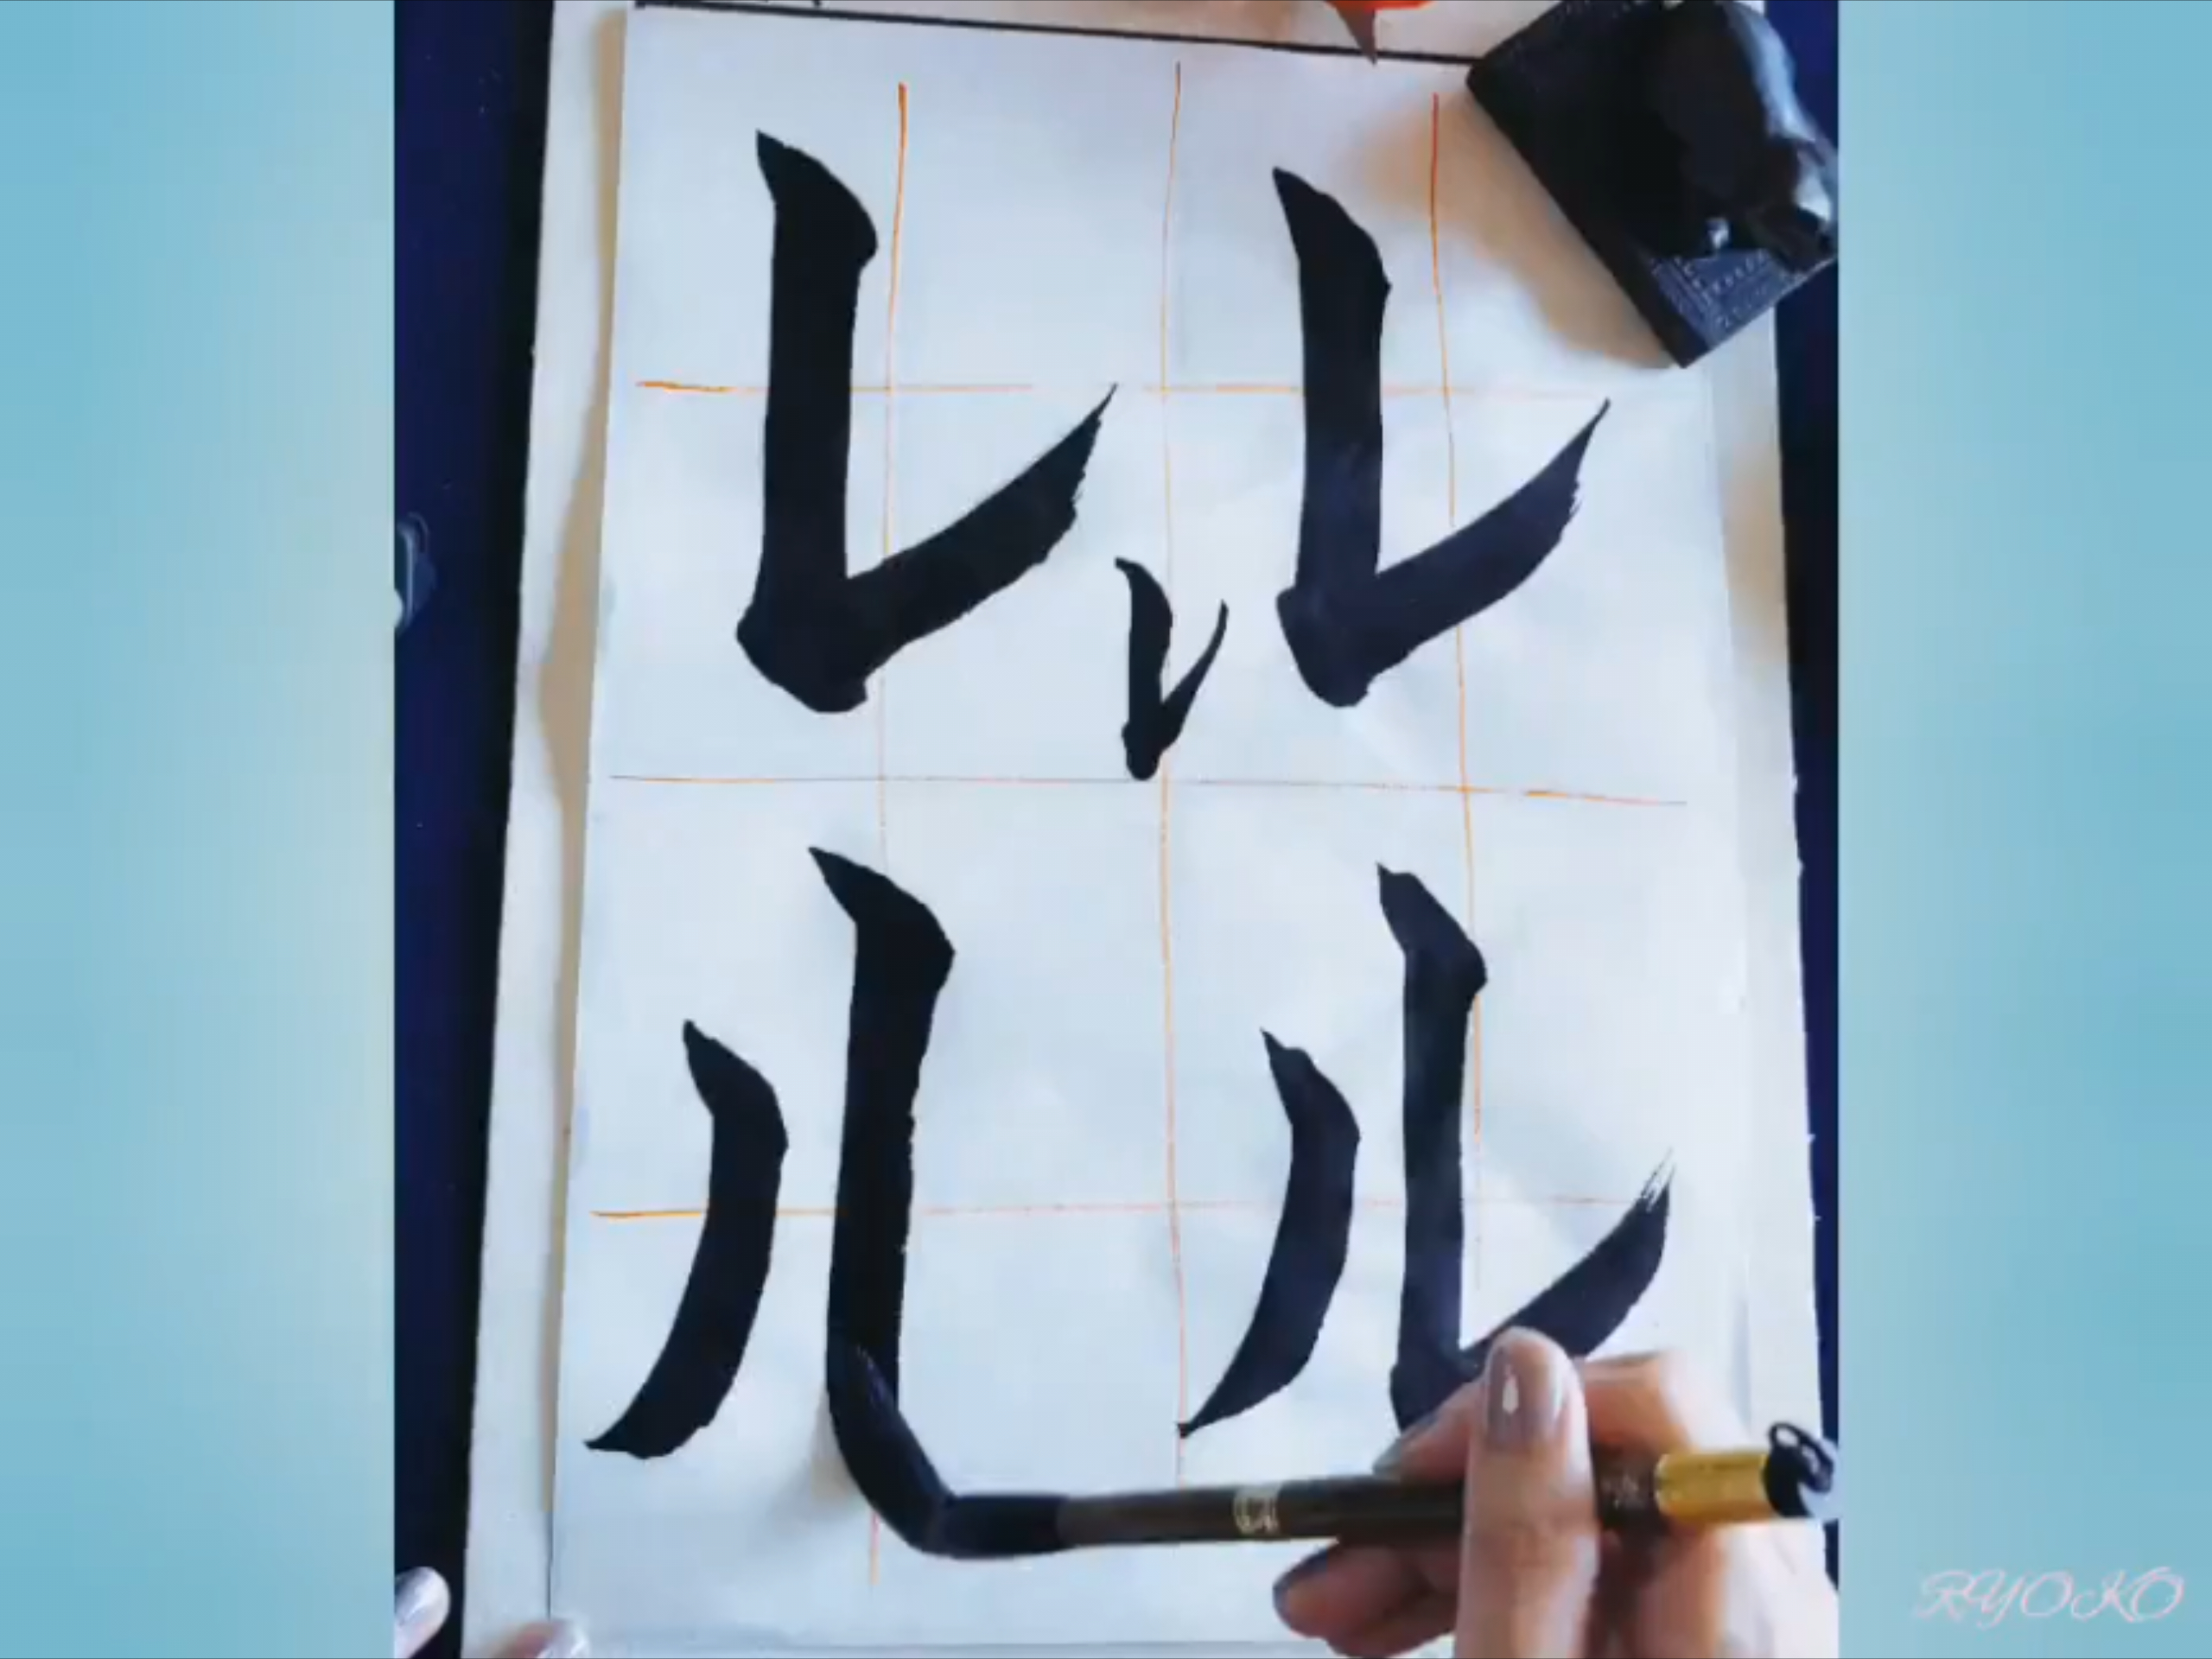 レ レ
レ
ル ル
RYOKO